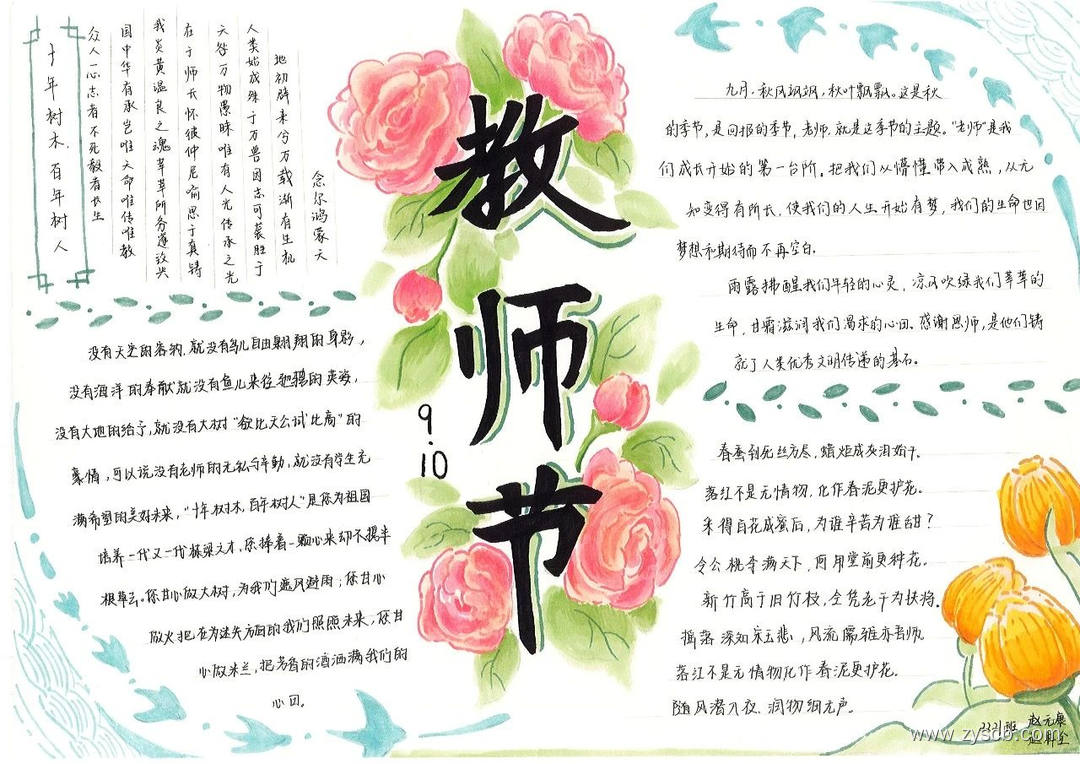 教师节
9.10
十年树木，百年树人
念尔鸿蒙天
地初辟来兮万载渐有生机
人类始成殊于万兽因志可萦胜于
天谷万物愚昧唯有人光传承之光
在于师长怀彼仲尼喻思于真铸
我炎黄温良之魂莘莘所务遵议共
国中华有承岂唯天命唯传唯教
众人一心志者不死教者长生
没有天空的容纳，就没有鸟儿自由翱翔的身影，
没有海洋的奉献就没有鱼儿来往驰骋的英姿，
没有大地的给予，就没有大树“欲比天公试比高”的
豪情，可以说没有老师的无私与辛勤，就没有学生充
满希望的美好未来，“十年树木，百年树人”是你为祖国
培养一代又一代栋梁之才，你捧着一颗心来却不摸半
根草去。你甘心做大树，为我们遮风避雨；你甘心
做火把在为迷失方向的我们照照未来，你甘
心做米兰，把芳香的酒洒满我们的
心田。
九月，秋风飒飒，秋叶飘飘。这是秋
的季节，是回报的季节，老师，就是这季节的主题。“老师”是我
们成长开始的第一台阶，把我们从懵懂带入成熟，从无
知变得有所长，使我们的人生开始有梦，我们的生命也因
梦想和期待而不再空白。
雨露拂醒我们年轻的心灵，凉风吹绿我们莘莘的
生命，甘霖滋润我们渴求的心田。感谢恩师，是他们铸
就了人类优秀文明传递的基石。
春蚕到死丝方尽，蜡炬成灰泪始干。
落红不是无情物，化作春泥更护花。
采得百花成蜜后，为谁辛苦为谁甜？
令公桃李满天下，何用堂前更种花。
新竹高于旧竹枝，全凭老干为扶持。
摇落深知宋玉悲，风流儒雅亦吾师。
落红不是无情物化作春泥更护花。
随风潜入夜，润物细无声。
2221班 赵元康
www.zyscb.com